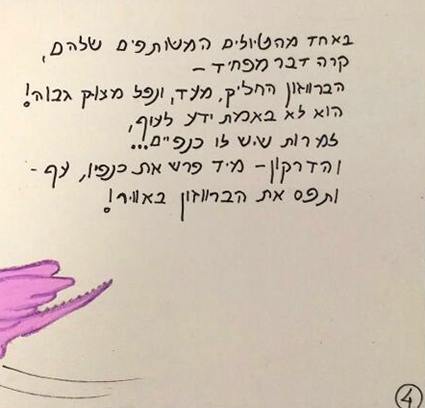 באחד מהטיולים המשותפים שלהם,
קרה דבר מפחיד –
הברווזון החליק, מעד, ונפל מצוק גבוה!
הוא לא באמת ידע לעוף,
למרות שיש לו כנפיים...
והדרקון – מיד פרש את כנפיו, עף -
ותפס את הברווזון באוויר!
4